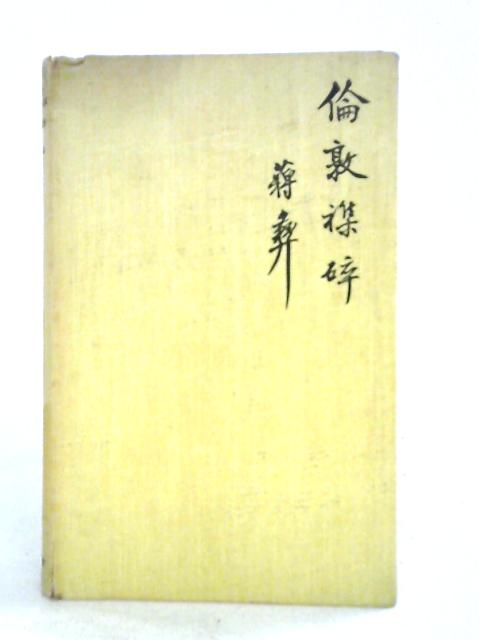 倫敦襍碎
蔣彝